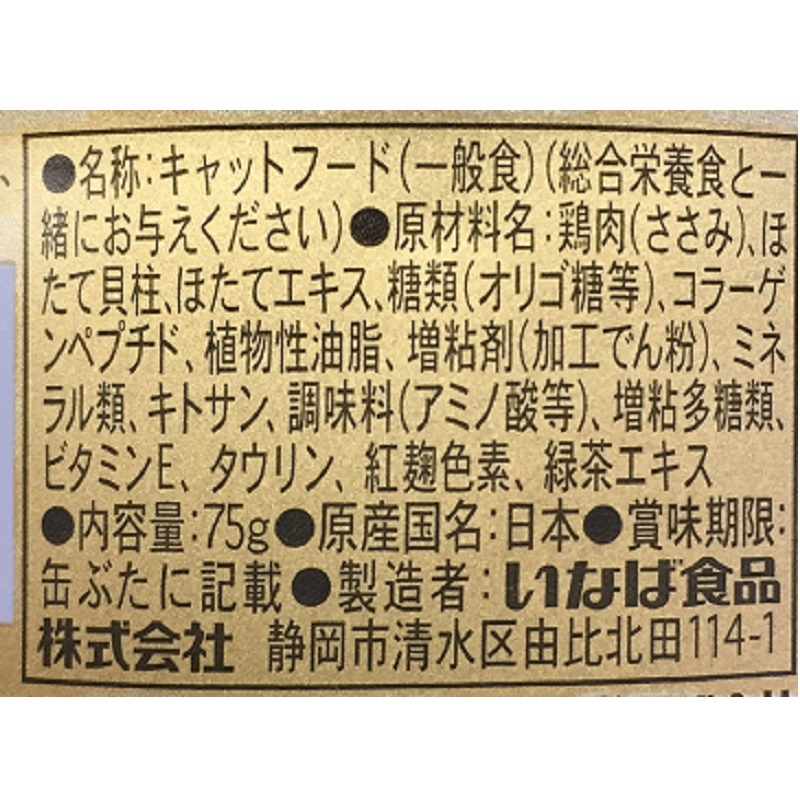 ●名称:キャットフード(一般食)(総合栄養食と一
緒にお与えください)●原材料名:鶏肉(ささみ)、ほ
たて貝柱、ほたてエキス、糖類(オリゴ糖等)、コラーゲ
ンペプチド、植物性油脂、増粘剤(加工でん粉)、ミネ
ラル類、キトサン、調味料(アミノ酸等)、増粘多糖類、
ビタミンE、タウリン、紅麹色素、緑茶エキス
●内容量:75g●原産国名:日本●賞味期限:
缶ぶたに記載●製造者:いなば食品
株式会社 静岡市清水区由比北田114-1